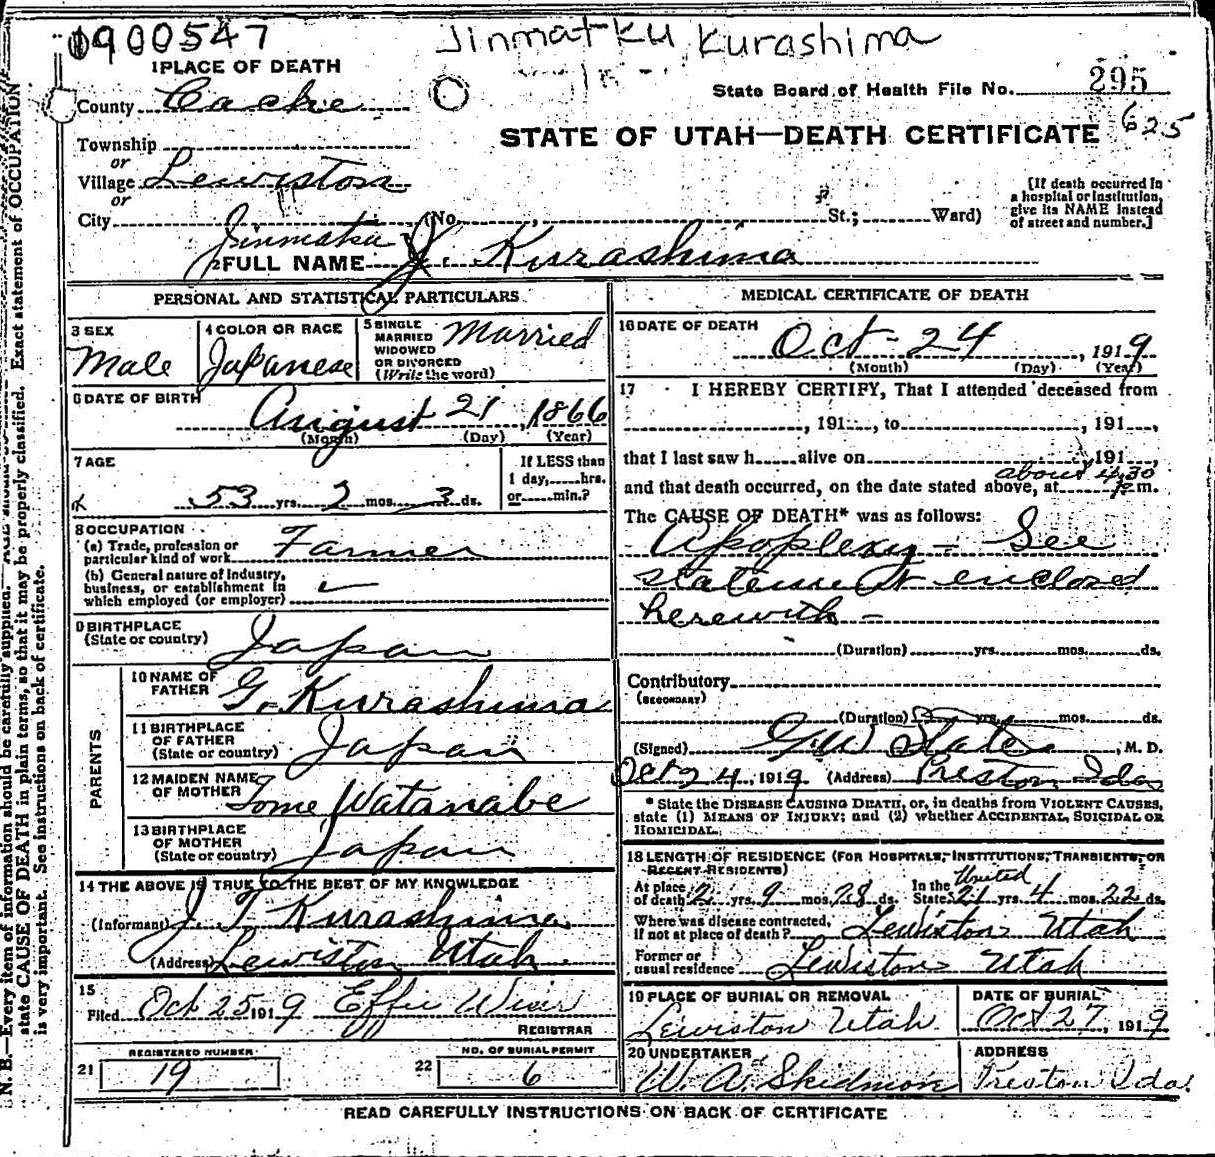 1900547
Jinmatku Kurashima
1 PLACE OF DEATH
County Cache
State Board of Health File No. 295
625
STATE OF UTAH—DEATH CERTIFICATE
Township
or
Village Lewiston
or
City (No. , St.; Ward)
[If death occurred in a hospital or institution, give its NAME instead of street and number.]
Jinmatku
2 FULL NAME J. Kurashima
PERSONAL AND STATISTICAL PARTICULARS
3 SEX
Male
4 COLOR OR RACE
Japanese
5 SINGLE
MARRIED
WIDOWED
OR DIVORCED
(Write the word)
Married
6 DATE OF BIRTH
August 21, 1866
(Month) (Day) (Year)
7 AGE
53 yrs. 2 mos. 3 ds.
If LESS than
1 day, hrs.
or min.?
8 OCCUPATION
(a) Trade, profession or
particular kind of work Farmer
(b) General nature of industry,
business, or establishment in
which employed (or employer)
9 BIRTHPLACE
(State or country) Japan
PARENTS
10 NAME OF
FATHER G. Kurashima
11 BIRTHPLACE
OF FATHER
(State or country) Japan
12 MAIDEN NAME
OF MOTHER Tome Watanabe
13 BIRTHPLACE
OF MOTHER
(State or country) Japan
14 THE ABOVE IS TRUE TO THE BEST OF MY KNOWLEDGE
(Informant) J T Kurashima
(Address) Lewiston Utah.
15
Filed Oct 25 1919 Effie Wiser
REGISTRAR
21 REGISTERED NUMBER
19
22 NO. OF BURIAL PERMIT
6
MEDICAL CERTIFICATE OF DEATH
16 DATE OF DEATH
Oct- 24, 1919
(Month) (Day) (Year)
17 I HEREBY CERTIFY, That I attended deceased from
, 191 , to , 191 ,
that I last saw h alive on , 191 ,
about 4.30
and that death occurred, on the date stated above, at P m.
The CAUSE OF DEATH* was as follows:
Apoplexy - See
statement enclosed
herewith -
(Duration) yrs. mos. ds.
Contributory
(SECONDARY)
(Duration) yrs. mos. ds.
(Signed) G.W. States, M. D.
Oct 24, 1919 (Address) Preston Ida
* State the DISEASE CAUSING DEATH, or, in deaths from VIOLENT CAUSES,
state (1) MEANS OF INJURY; and (2) whether ACCIDENTAL, SUICIDAL OR
HOMICIDAL.
18 LENGTH OF RESIDENCE (FOR HOSPITALS, INSTITUTIONS, TRANSIENTS, OR
RECENT RESIDENTS)
United
At place of death 2 yrs. 9 mos. 28 ds. In the State 21 yrs. 4 mos. 22 ds.
Where was disease contracted,
If not at place of death? Lewiston Utah
Former or
usual residence Lewiston Utah
19 PLACE OF BURIAL OR REMOVAL
Lewiston Utah
DATE OF BURIAL
Oct 27, 1919
20 UNDERTAKER
W. A. Skidmore
ADDRESS
Preston Ida.
READ CAREFULLY INSTRUCTIONS ON BACK OF CERTIFICATE
N. B.—Every item of information should be carefully supplied. Exact statement of OCCUPATION
state CAUSE OF DEATH in plain terms, so that it may be properly classified.
is very important. See instructions on back of certificate.